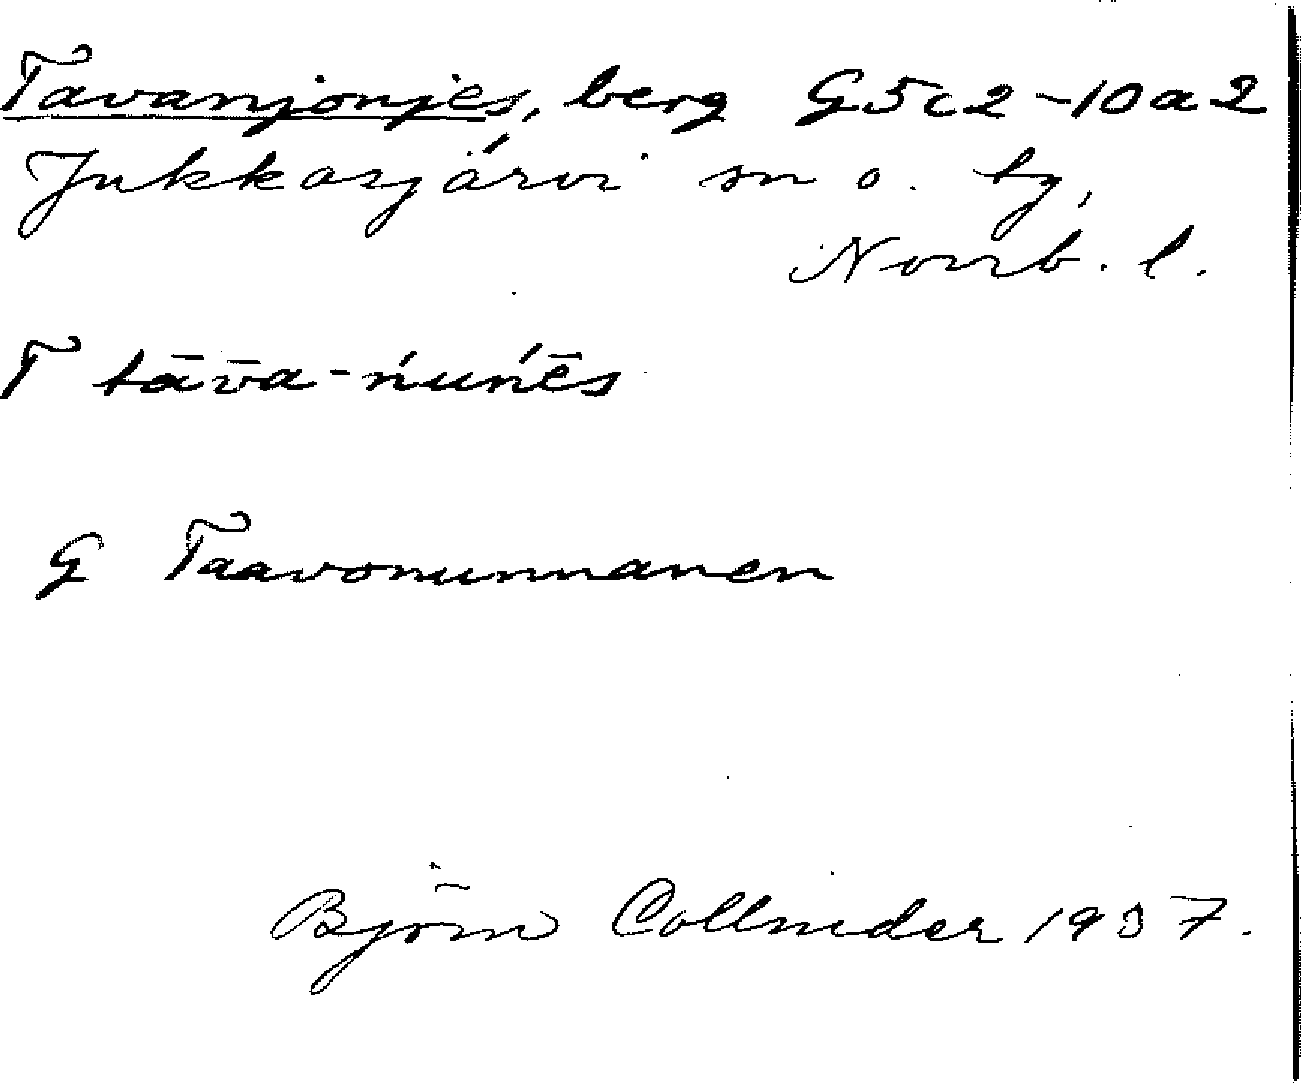 Tavanjonjes, berg G5c2-10a2
Jukkasjärvi sn o. by,
Norrb. l.
T tāv̄a-ńuńēs
G Taavonunnanen
Björn Collinder 1937.